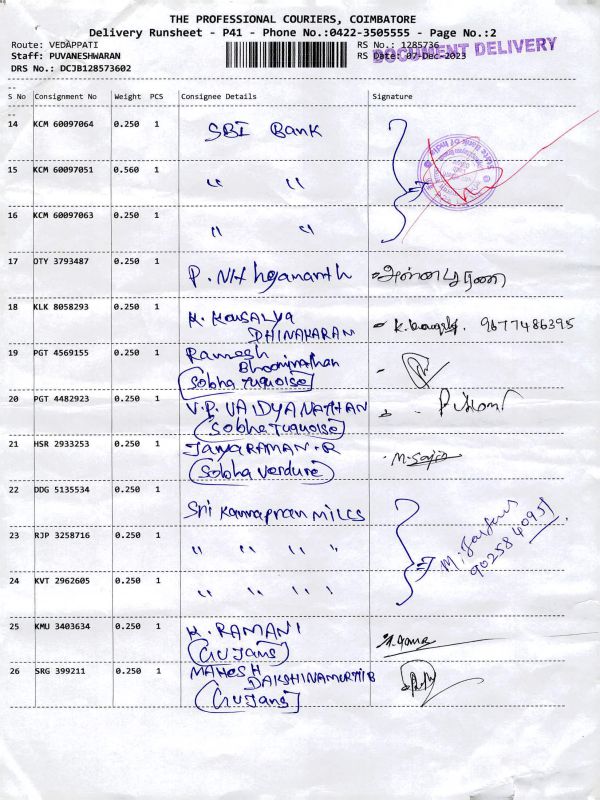 THE PROFESSIONAL COURIERS, COIMBATORE
Delivery Runsheet - P41 - Phone No.:0422-3505555 - Page No.:2
Route: VEDAPPATI
Staff: PUVANESHWARAN
DRS No.: DCJB128573602
RS No.: 1285736
RS Date: 07-Dec-2023
DOCUMENT DELIVERY
S No Consignment No Weight PCS Consignee Details Signature
14 KCM 60097064 0.250 1 SBI Bank
15 KCM 60097051 0.560 1 " "
State Bank of India
16 KCM 60097063 0.250 1 " "
17 OTY 3793487 0.250 1 P. Nithyananth - அன்னபூரணை
18 KLK 8058293 0.250 1 K. KOUSALYA
DHINAKARAN - 9677486395
19 PGT 4569155 0.250 1 Ramesh
Bhoominathan
Sobha Tuquoise
20 PGT 4482923 0.250 1 V.P. VAIDYANATHAN
Sobha Tuquoise
21 HSR 2933253 0.250 1 JAYARAMAN.R
Sobha Verdure
22 DDG 5135534 0.250 1 Sri Kannapran MILLS
23 RJP 3258716 0.250 1 " " " "
9025840951
24 KVT 2962605 0.250 1 " " " "
25 KMU 3403634 0.250 1 K. RAMANI
26 SRG 399211 0.250 1 MAHESH
DAKSHINAMURTHI B